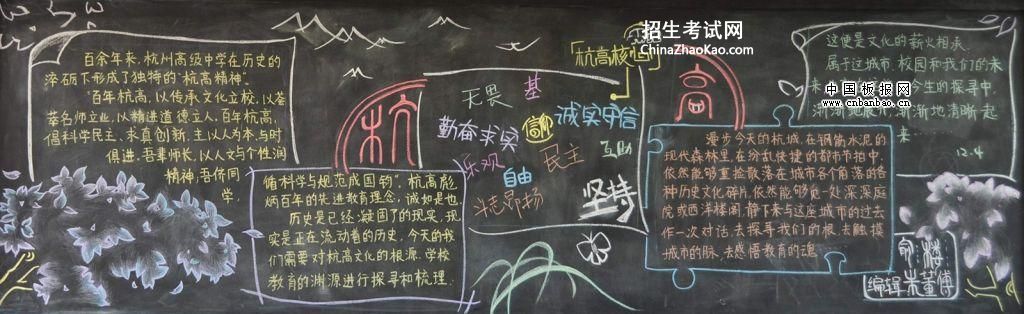 百余年来,杭州高级中学在历史的
淬砺下形成了独特的"杭高精神"。
"百年杭高,以传承文化立校,以荟
萃名师立业,以精进道德立人,百年杭高,
倡科学民主、求真创新,主以人为本,与时
俱进,吾辈师长,以人文与个性润
精神,吾侪同
学,
杭
循科学与规范成国钧"。杭高彪
炳百年的先进教育理念,诚如是也
历史是已经凝固了的现实,现
实是正在流动着的历史,今天的我
们需要对杭高文化的根源、学校
教育的渊源进行探寻和梳理.
招生考试网
ChinaZhaoKao.com
「杭高核心」
无畏
基
诚实守信
勤奋求实
信仰
乐观
民主
互助
自由
斗志昂扬
坚持
高
漫步今天的杭城,在钢筋水泥的
现代森林里,在纷乱快捷的都市节拍中,
依然能够重捡散落在城市各个角落的各
种历史文化碎片,依然能够觅一处深深庭
院或西洋楼阁,静下来与这座城市的过去
作一次对话,去探寻我们的根,去触摸
城市的脉,去感悟教育的魂
这便是文化的薪火相承.
属于这城市,校园和我们的未
来
今生的探寻中,
渐渐地展开,渐渐地清晰起
来
12.4
中国板报网
www.cnbanbao.cn
编辑